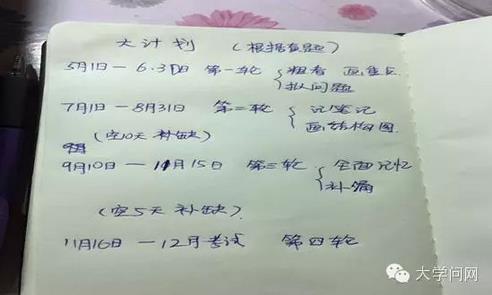 大计划 (根据真题)
5月1日—6.30日 第一轮 粗看 画重点
拟问题
7月1日—8月31日 第二轮 记笔记
画结构图
(空10天 补缺)
9月10日—11月15日 第三轮 全面记忆
补漏
(空5天 补缺)
11月16日—12月考试 第四轮
大学问网